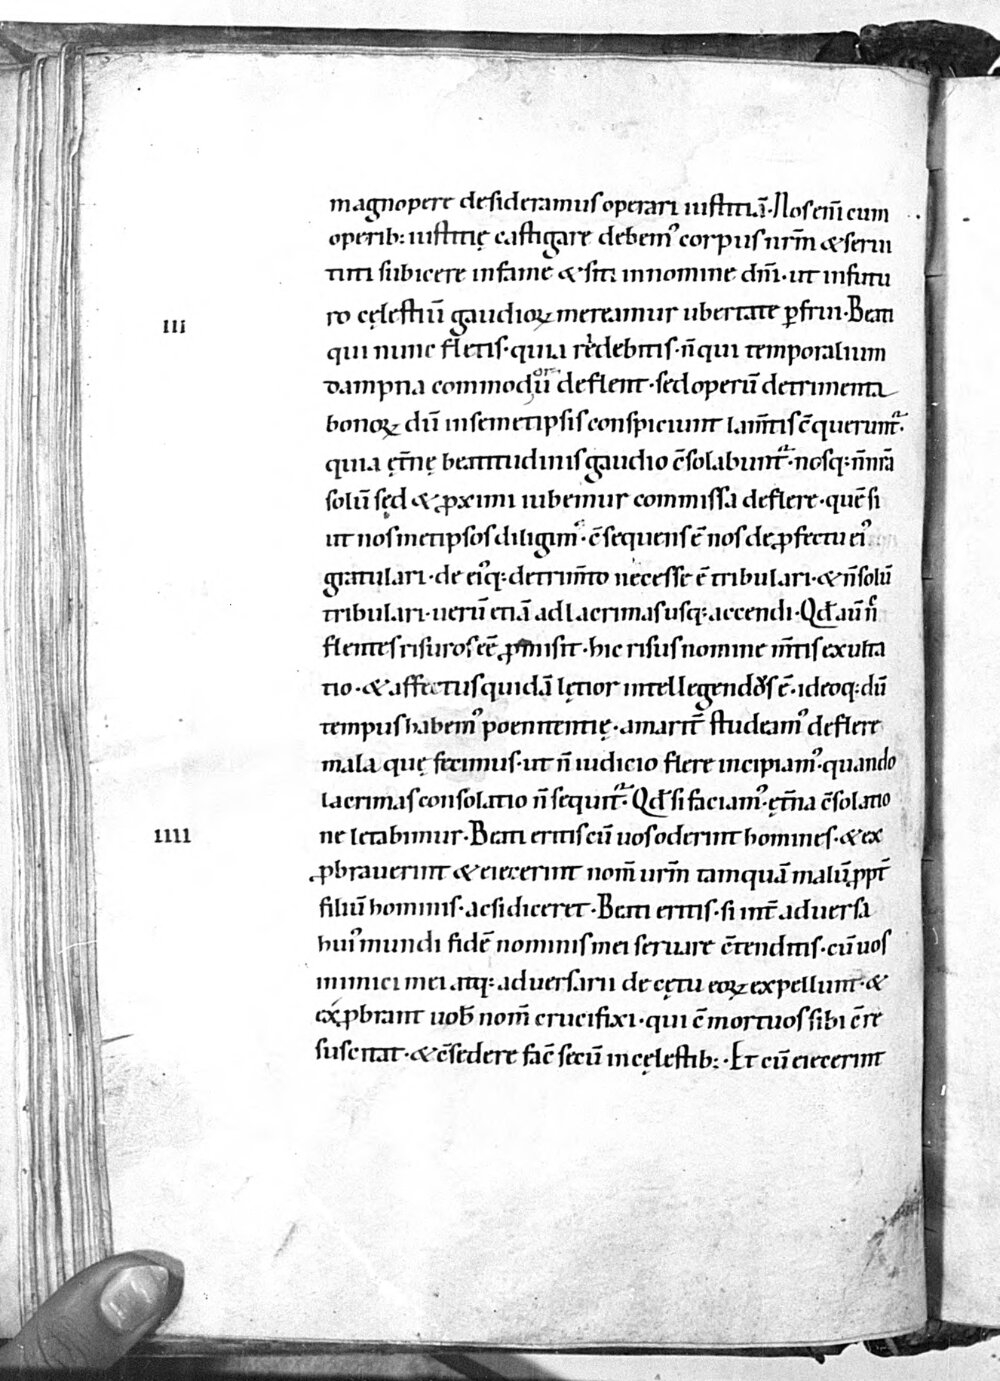 magnopere desideramus operari iustitiā· Nos em̄ cum
operib: iustitię castigare debem᾽ corpus nr̄m & serui
tuti subicere in fame & siti in nomine dn̄i· ut in futu
ro cęlestiū gaudioꝝ mereamur ubertate ꝑfrui· Beati
III
qui nunc fletis· quia ridebitis· n̄ qui temporalium
dampna commodorū deflent· sed operū detrimenta
bonoꝝ dū in semetipsis conspiciunt lam̄tis c̄querunt᷑·
quia ęt̄nę beatitudinis gaudio c̄solabunt᷑· nosq: n̄ nr̄a
solū sed & ꝓximi iubemur commissa deflere· quē si
ut nosmetipsos diligim᾽· c̄sequens ē nos de ꝓfectu ei᾽
gratulari· de ei᾽q: detrim̄to necesse ē tribulari· & n̄ solū
tribulari· uerū etiā ad lacrimas usq: accendi· Qđ aū n̄c
flentes risuros eē ꝓmisit· hic risus nomine m̄tis exulta
tio· & affectus quidā lętior intellegendus ē· ideoq: dū
tempus habem᾽ poenitentię· amarit̄ studeam᾽ deflere
mala quę fecimus· ut n̄ iudicio flere incipiam᾽· quando
lacrimas consolatio n̄ sequit᷑· Qđ si faciam᾽· ęt̄na c̄solatio
ne letabimur· Beati eritis cū uos oderint homines· & ex
IIII
ꝓbrauerint & eiecerint nom̄ ur̄m tamquā malū ꝓpt̄
filiū hominis· ac si diceret· Beati eritis· si int̄ aduersa
hui᾽ mundi fidē nominis mei seruare c̄tenditis· cū uos
inimici mei atq: aduersarii de cętu eoꝝ expellunt· &
exꝓbrant uob̄ nom̄ crucifixi· qui ē mortuos sibi c̄re
suscitat· & c̄sedere fac̄ secū in cęlestib:· Et cū eiecerint